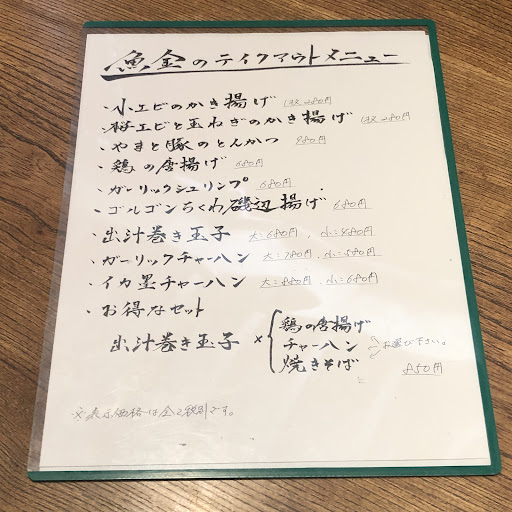 魚金のテイクアウトメニュー
・小エビのかき揚げ 1枚280円
・桜エビと玉ねぎのかき揚げ 1枚280円
・やまと豚のとんかつ 980円
・鶏の唐揚げ 680円
・ガーリックシュリンプ 680円
・ゴルゴンちくわ磯辺揚げ 680円
・出汁巻き玉子 大=680円、小=480円
・ガーリックチャーハン 大=780円、小=580円
・イカ墨チャーハン 大=880円、小=680円
・お得なセット
出汁巻き玉子 × { 鶏の唐揚げ
チャーハン お選び下さい。
焼きそば 850円
※表示価格は全て税別です。